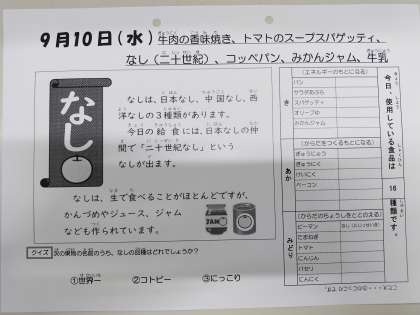 9月10日(水)牛肉の香味焼き、トマトのスープスパゲッティ、
なし(二十世紀)、コッペパン、みかんジャム、牛乳
なし
なしは、日本なし、中国なし、西
洋なしの3種類があります。
今日の給食には、日本なしの仲
間で「二十世紀なし」という
なしが出ます。
なしは、生で食べることがほとんどですが、
かんづめやジュース、ジャム
なども作られています。
クイズ 次の果物の名前のうち、なしの品種はどれでしょうか？
①世界一 ②コトピー ③にっこり
き (エネルギーのもとになる)
パン
サラダあぶら
スパゲッティ
オリーブゆ
みかんジャム
あか (からだをつくるもとになる)
ぎゅうにゅう
ぎゅうにく
けいにく
ベーコン
みどり (からだのちょうしをととのえる)
ピーマン
たまねぎ
トマト
にんじん
パセリ
にんにく
今日、使用している食品は
16
種類です。